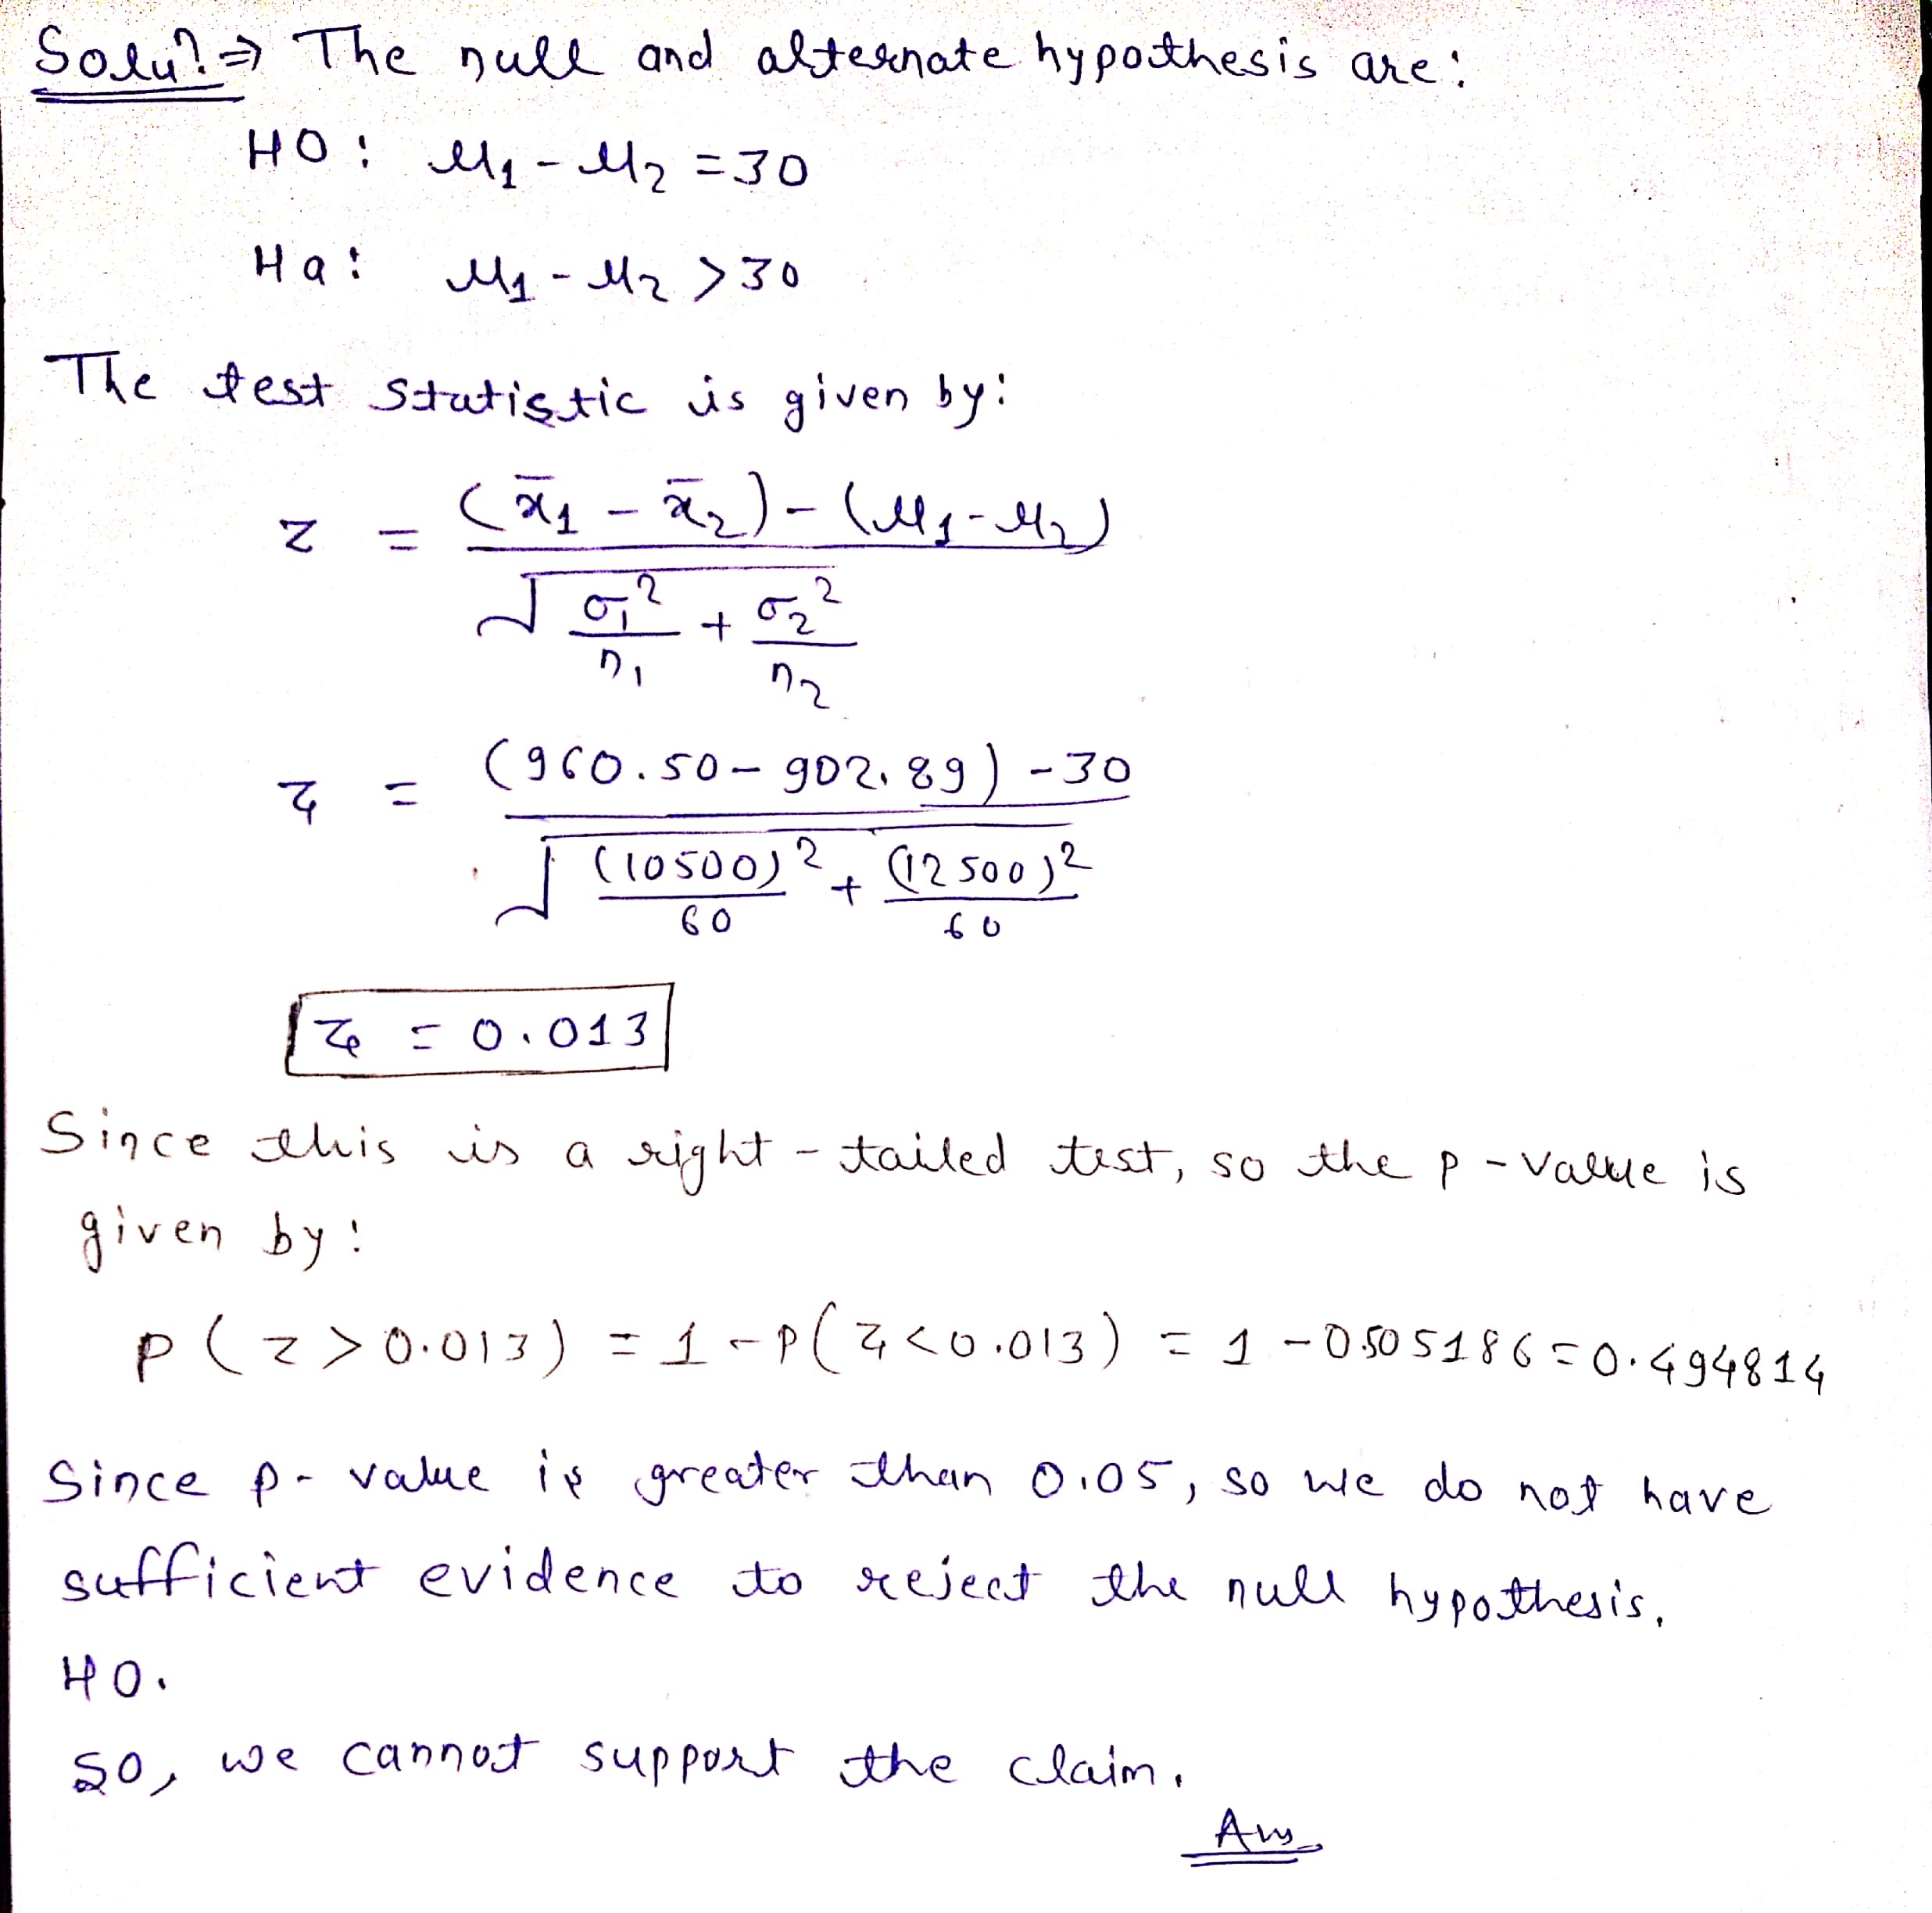 Solun ⇒ The null and alternate hypothesis are:
H0: μ1 - μ2 = 30
Ha: μ1 - μ2 > 30
The test statistic is given by:
z = (x̄1 - x̄2) - (μ1 - μ2)
√ σ1² / n1 + σ2² / n2
z = (960.50 - 902.89) - 30
√ (10500)² / 60 + (12500)² / 60
z = 0.013
Since this is a right-tailed test, so the p-value is
given by:
P(z > 0.013) = 1 - P(z < 0.013) = 1 - 0.505186 = 0.494814
Since p-value is greater than 0.05, so we do not have
sufficient evidence to reject the null hypothesis.
H0.
So, we cannot support the claim.
Ans